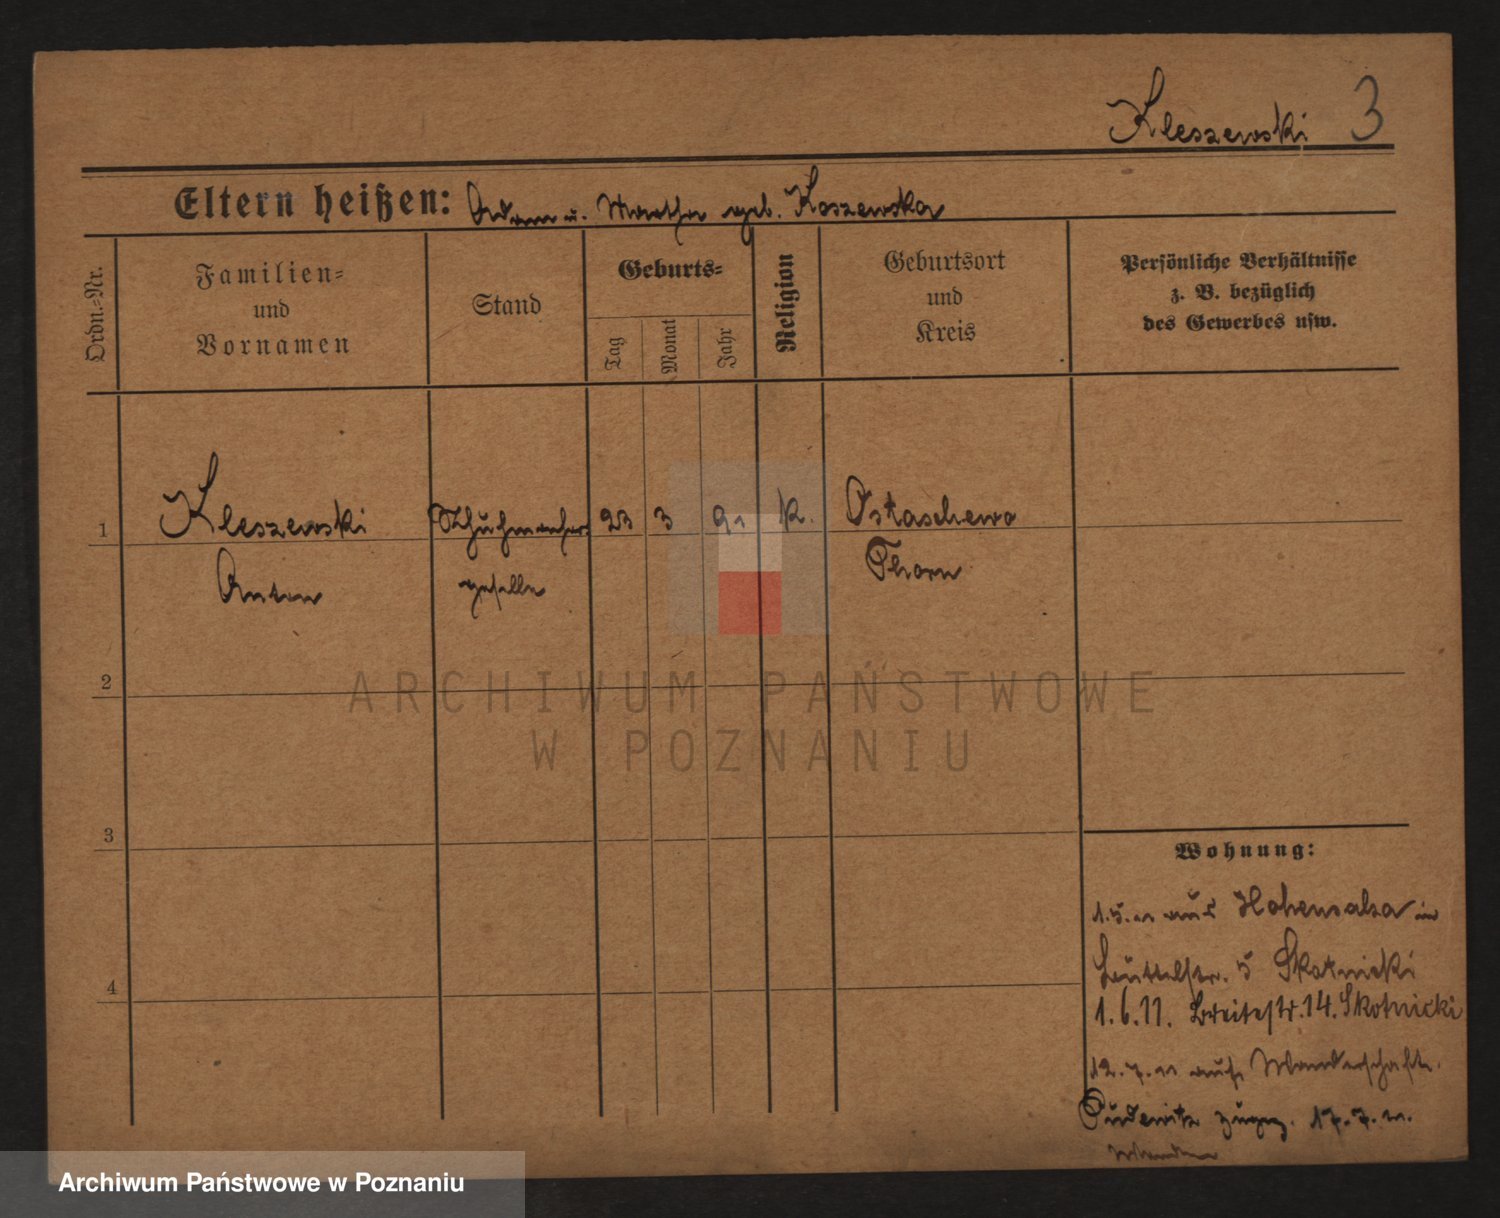 Kleszewski 3
Eltern heißen: Adam u. Martha geb. Koszewska
Ordn.-Nr.
Familien-
und
Vornamen
Stand
Geburts-
Tag
Monat
Jahr
Religion
Geburtsort
und
Kreis
Persönliche Verhältnisse
z. B. bezüglich
des Gewerbes usw.
1 Kleszewski Schuhmacher 23 3 91 K. Ostaschewo
Anton geselle Thorn
2
3
4
Wohnung:
1.5.11 aus Hohensalza in
5 Skotnicki
1.6.11. Breitestr. 14. Skotnicki
12.7.11 auf Wanderschaft.
Pudewitz zugez. 17.7.11.
ARCHIWUM PAŃSTWOWE
W POZNANIU
Archiwum Państwowe w Poznaniu